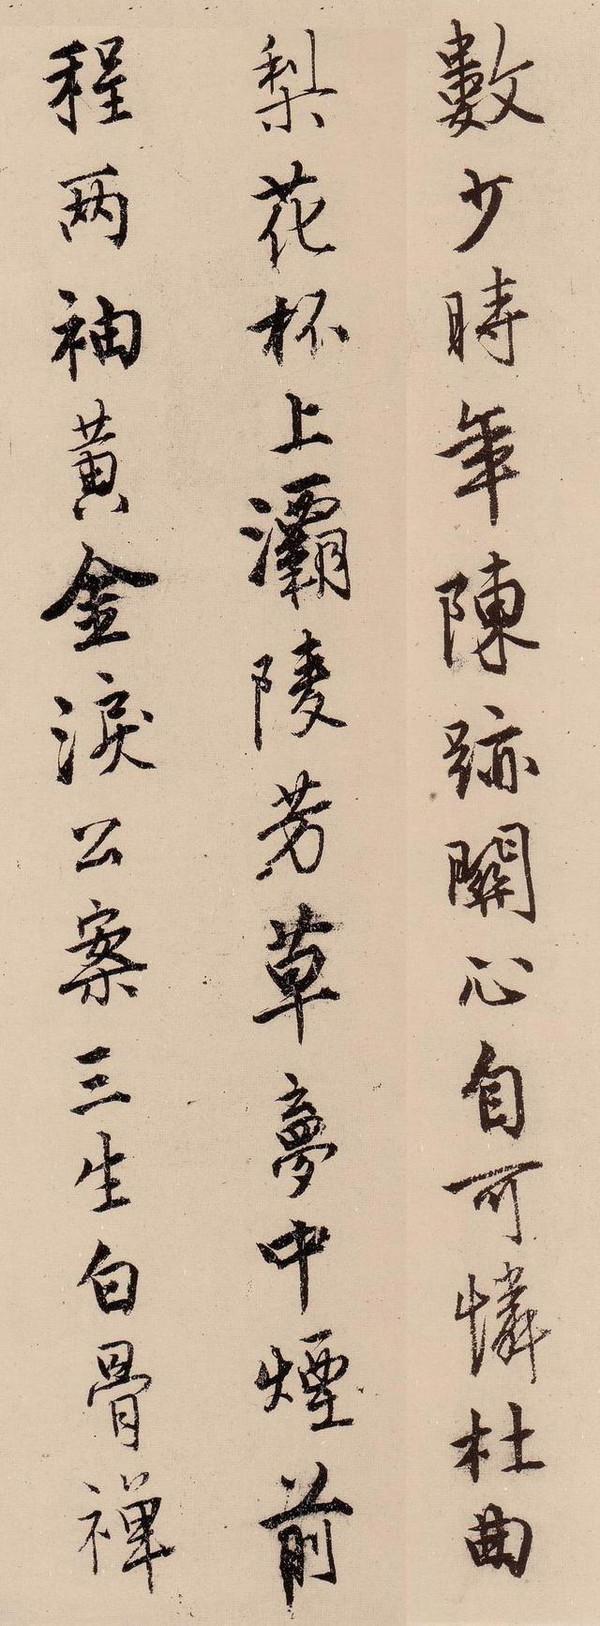 數少時年陳跡關心自可憐杜曲
梨花杯上灞陵芳草夢中煙前
程兩袖黃金淚公案三生白骨禪